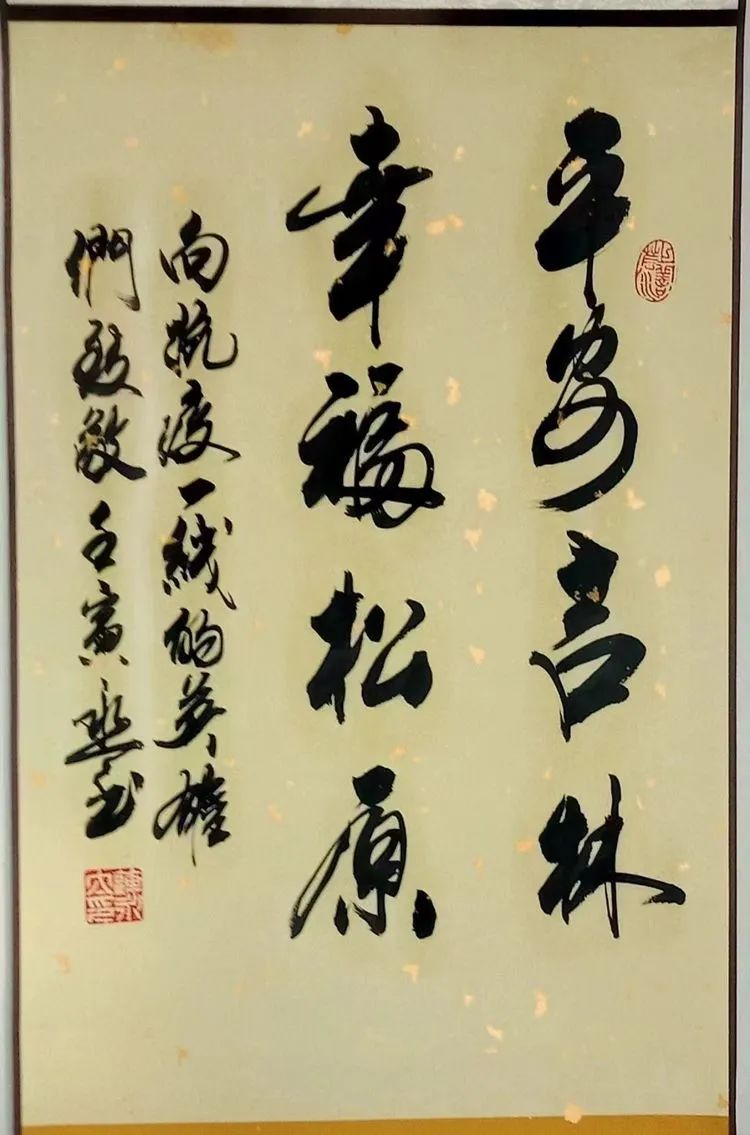 平安吉林
幸福松原
向抗疫一线的英雄
們致敬 壬寅